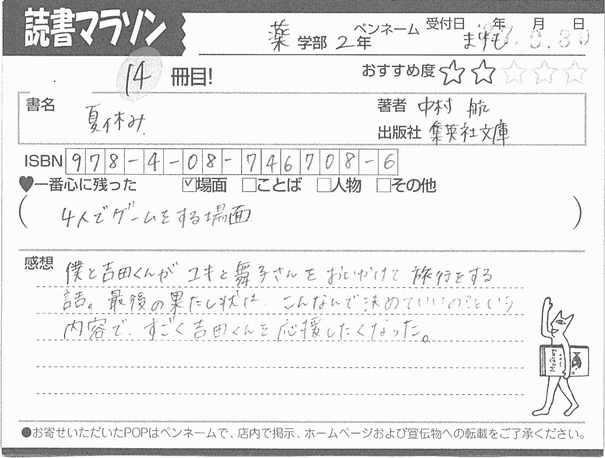 読書マラソン
薬 学部 2年
ペンネーム まりも
受付日 年 月 日
14 冊目!
おすすめ度 ★★☆☆☆
書名 夏休み
著者 中村 航
出版社 集英社文庫
ISBN 978-4-08-746708-6
♥一番心に残った ☑場面 □ことば □人物 □その他
(4人でゲームをする場面)
感想 僕と吉田くんがユキと舞子さんをおいかけて旅行をする
話。最後の果たし状は、こんなんで決めていいの?という
内容で、すごく吉田くんを応援したくなった。
●お寄せいただいたPOPはペンネームで、店内で掲示、ホームページおよび宣伝物への転載をご了承ください。